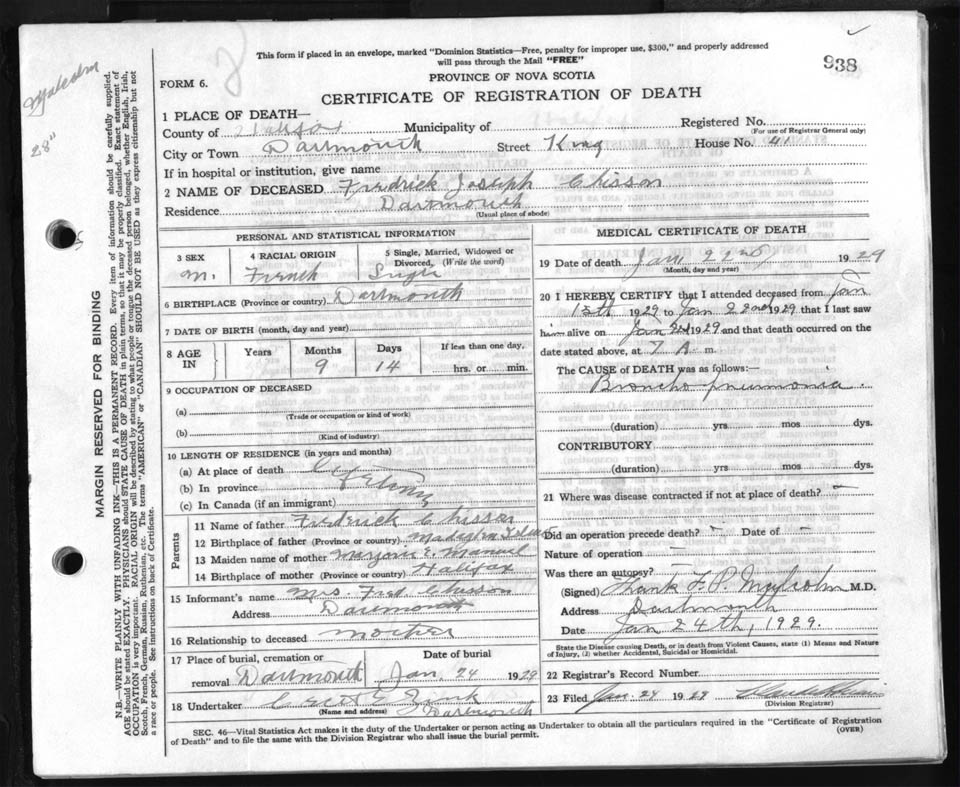 This form if placed in an envelope, marked "Dominion Statistics—Free, penalty for improper use, $300," and properly addressed
will pass through the Mail "FREE"
938
FORM 6.
PROVINCE OF NOVA SCOTIA
CERTIFICATE OF REGISTRATION OF DEATH
Malcolm
28"
MARGIN RESERVED FOR BINDING
N.B.—WRITE PLAINLY WITH UNFADING INK—THIS IS A PERMANENT RECORD. Every item of information should be carefully supplied.
AGE should be stated EXACTLY. PHYSICIANS should STATE CAUSE OF DEATH in plain terms, so that it may be properly classified. Exact statement of
OCCUPATION is very important. RACIAL ORIGIN will be described by stating to what people or tongue the deceased person belonged, whether English, Irish,
Scotch, French, German, Russian, Ruthenian, etc. The terms "AMERICAN" or "CANADIAN" SHOULD NOT BE USED as they express citizenship but not
a race or people. See instructions on back of Certificate.
1 PLACE OF DEATH—
County of Halifax Municipality of Registered No.
(For use of Registrar General only)
City or Town Dartmouth Street King House No. 41
If in hospital or institution, give name
2 NAME OF DECEASED Fredrick Joseph Chisson
Residence Dartmouth
(Usual place of abode)
PERSONAL AND STATISTICAL INFORMATION
3 SEX 4 RACIAL ORIGIN 5 Single, Married, Widowed or Divorced, (Write the word)
M. French Single
6 BIRTHPLACE (Province or country) Dartmouth
7 DATE OF BIRTH (month, day and year)
8 AGE IN Years Months Days If less than one day,
9 14 hrs. or min.
9 OCCUPATION OF DECEASED
(a)
(Trade or occupation or kind of work)
(b)
(Kind of industry)
10 LENGTH OF RESIDENCE (in years and months)
(a) At place of death
(b) In province Lifetime
(c) In Canada (if an immigrant)
Parents
11 Name of father Fredrick Chisson
12 Birthplace of father (Province or country)
13 Maiden name of mother Marjorie E. Manuel
14 Birthplace of mother (Province or country) Halifax
15 Informant's name Mrs. Fred Chisson
Address Dartmouth
16 Relationship to deceased mother
17 Place of burial, cremation or removal Dartmouth Date of burial Jan. 24 1929
18 Undertaker Zink
(Name and address) Dartmouth
MEDICAL CERTIFICATE OF DEATH
19 Date of death Jan 22nd 1929
(Month, day and year)
20 I HEREBY CERTIFY that I attended deceased from Jan
15th 1929 to Jan 22nd 1929 that I last saw
him alive on Jan 1929 and that death occurred on the
date stated above, at 7 A. m.
The CAUSE of DEATH was as follows:
Broncho pneumonia.
(duration) yrs mos dys.
CONTRIBUTORY
(duration) yrs mos dys.
21 Where was disease contracted if not at place of death? —
Did an operation precede death? — Date of —
Nature of operation —
Was there an autopsy? —
(Signed) Frank F P Malcolm M.D.
Address Dartmouth
Date Jan 24th, 1929.
State the Disease causing Death, or in death from Violent Causes, state (1) Means and Nature
of Injury, (2) whether Accidental, Suicidal or Homicidal.
22 Registrar's Record Number
23 Filed Jan. 24 1929
(Division Registrar)
SEC. 46—Vital Statistics Act makes it the duty of the Undertaker or person acting as Undertaker to obtain all the particulars required in the "Certificate of Registration
of Death" and to file the same with the Division Registrar who shall issue the burial permit. (OVER)